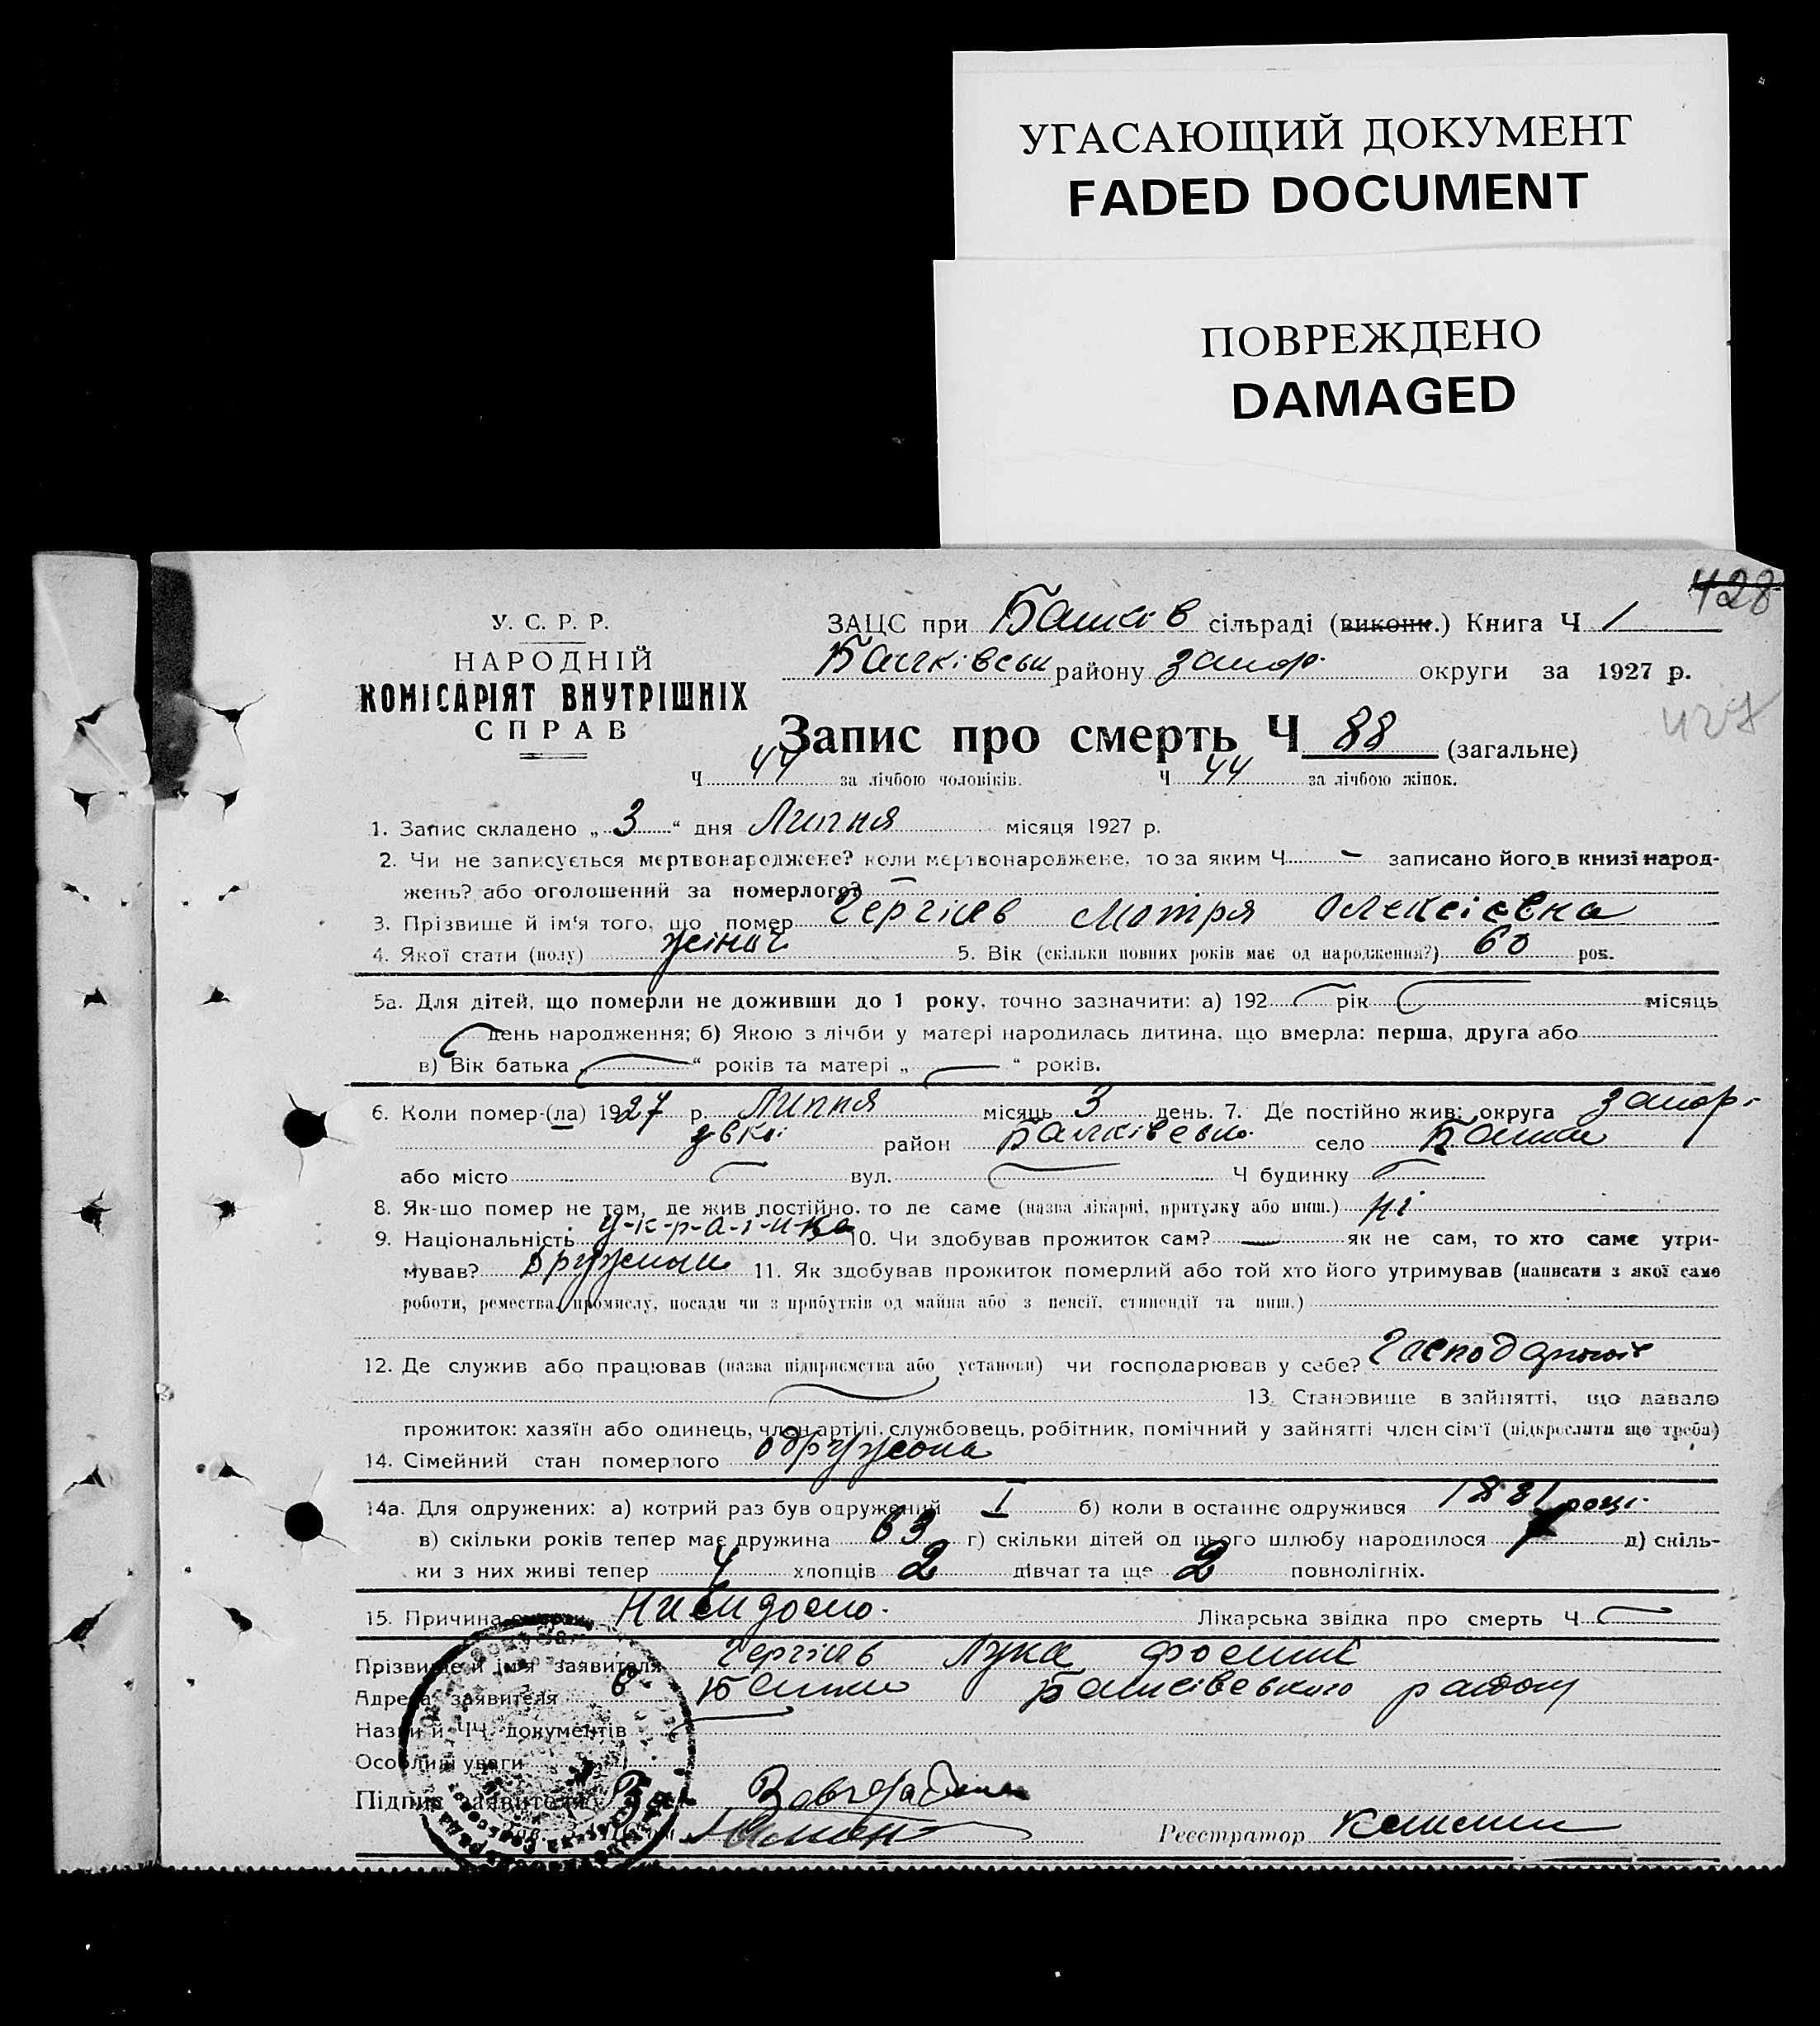 УГАСАЮЩИЙ ДОКУМЕНТ
FADED DOCUMENT
ПОВРЕЖДЕНО
DAMAGED
428
У. С. Р. Р.
НАРОДНІЙ
КОМІСАРІЯТ ВНУТРІШНІХ
СПРАВ
ЗАЦС при сільраді (викони.) Книга Ч 1
району Запор. округи за 1927 р.
427
Запис про смерть Ч 88 (загальне)
Ч 44 за лічбою чоловіків. Ч 44 за лічбою жінок.
1. Запис складено „ 3 “ дня Липня місяця 1927 р.
2. Чи не записується мертвонароджене? коли мертвонароджене, то за яким Ч – записано його в книзі народ-
жень? або оголошений за померлого? –
3. Прізвище й ім'я того, що помер Сергієв Мотря Олексієвна
4. Якої стати (полу) жіноч 5. Вік (скільки повних років має од народження?) 60 рок.
5а. Для дітей, що померли не доживши до 1 року, точно зазначити: а) 192 рік місяць
день народження; б) Якою з лічби у матері народилась дитина, що вмерла: перша, друга або
в) Вік батька „ “ років та матері „ “ років.
6. Коли помер-(ла) 1927 р. Липня місяць 3 день. 7. Де постійно жив: округа Запорі-
район село
або місто вул. Ч будинку
8. Як-що помер не там, де жив постійно, то де саме (назва лікарні, притулку або инш.) ні
9. Національність у-к-р-а-ї-н-ка 10. Чи здобував прожиток сам? – як не сам, то хто саме утри-
мував? 11. Як здобував прожиток померлий або той хто його утримував (написати з якої саме
роботи, ремества, промислу, посади чи з прибутків од майна або з пенсії, стипендії та инш.)
12. Де служив або працював (назва підприємства або установи) чи господарював у себе?
13. Становище в зайнятті, що давало
прожиток: хазяїн або одинець, член артілі, службовець, робітник, помічний у зайнятті член сім'ї (підкреслити що треба)
14. Сімейний стан померлого одружона
14а. Для одружених: а) котрий раз був одружений I б) коли в останнє одружився 1881 році
в) скільки років тепер має дружина 63 г) скільки дітей од цього шлюбу народилося д) скіль-
ки з них живі тепер 4 хлопців 2 дівчат та ще 2 повнолітніх.
15. Причина смерти Лікарська звідка про смерть Ч
Прізвище й ім'я заявителя Сергієв Лука
Адреса заявителя району
Назви й ЧЧ документів
Особливі уваги
Підпис заявителя
Реєстратор